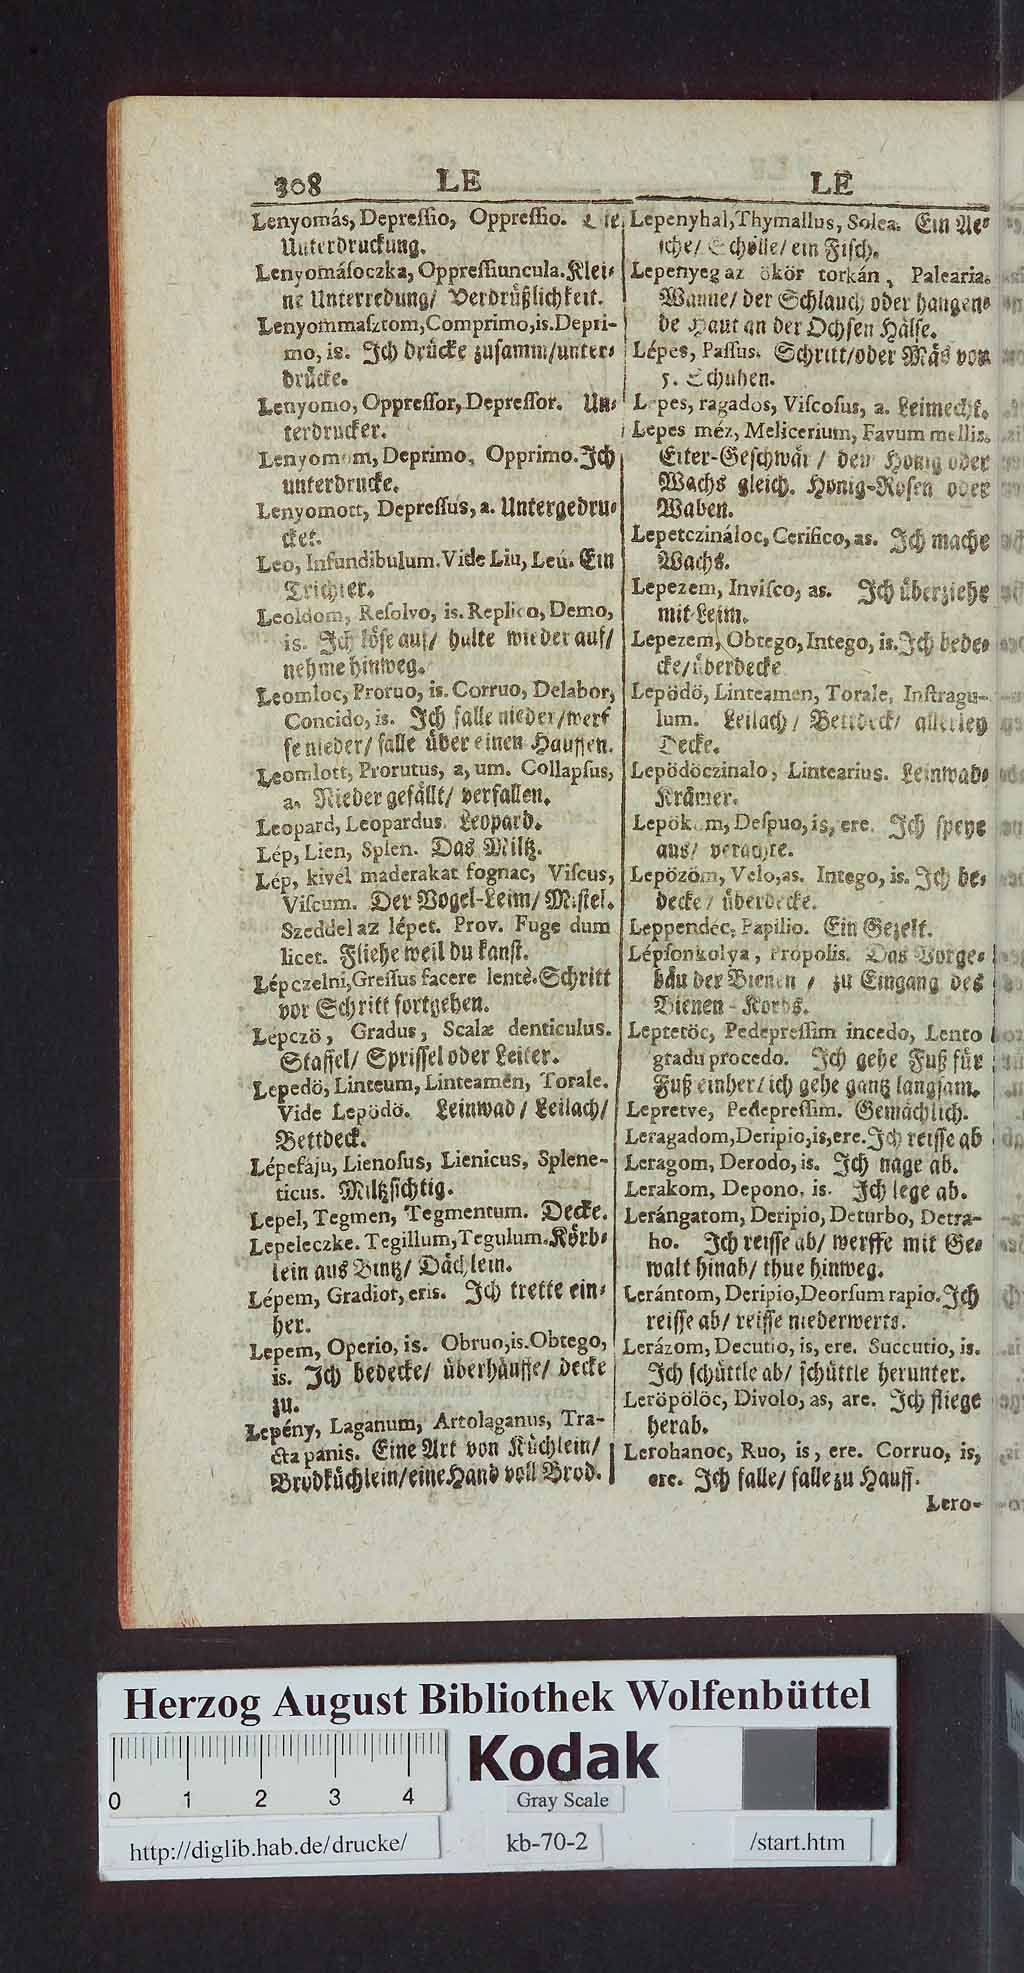 308 LE LE
Lenyomás, Depreſſio, Oppreſſio. Die
Unterdruckung.
Lenyomáſoczka, Oppreſſiuncula. Klei⸗
ne Unterredung/ Verdrüßlichkeit.
Lenyommaſztom, Comprimo, is. Depri-
mo, is. Ich drücke zuſamm/ unter⸗
drücke.
Lenyomo, Oppreſſor, Depreſſor. Un⸗
terdrucker.
Lenyomom, Deprimo, Opprimo. Ich
unterdrucke.
Lenyomott, Depreſſus, a. Untergedru⸗
cket.
Leo, Infundibulum. Vide Liu, Leú. Ein
Trichter.
Leoldom, Reſolvo, is. Replico, Demo,
is. Ich löſe auf/ hulte wieder auf/
nehme hinweg.
Leomloc, Proruo, is. Corruo, Delabor,
Concido, is. Ich falle nieder/ werf
fe nieder/ falle über einen Hauffen.
Leomlott, Prorutus, a, um. Collapſus,
a. Nieder gefällt/ verfallen.
Leopard, Leopardus. Leopard.
Lép, Lien, Splen. Das Miltz.
Lép, kivel maderakat fognac, Viſcus,
Viſcum. Der Vogel-Leim/ Miſtel.
Szeddel az lépet. Prov. Fuge dum
licet. Fliehe weil du kanſt.
Lépczelni, Greſſus facere lentè. Schritt
vor Schritt fortgehen.
Lepczö, Gradus, Scalæ denticulus.
Staffel/ Spriſſel oder Leiter.
Lepedö, Linteum, Linteamen, Torale.
Vide Lepödö. Leinwad/ Leilach/
Bettdeck.
Lépefáju, Lienoſus, Lienicus, Splene-
ticus. Miltzſichtig.
Lepel, Tegmen, Tegmentum. Decke.
Lepeleczke. Tegillum, Tegulum. Körb⸗
lein aus Bintz/ Dächlein.
Lépem, Gradior, eris. Ich trette ein⸗
her.
Lepem, Operio, is. Obruo, is. Obtego,
is. Ich bedecke/ überhäuffe/ decke
zu.
Lepény, Laganum, Artolaganus, Tra-
cta panis. Eine Art von Küchlein/
Brodküchlein/ eine Hand voll Brod.
Lepenyhal, Thymallus, Solea. Ein Ae⸗
ſche/ Scholle/ ein Fiſch.
Lepenyeg az ökör torkán, Palearia.
Wanne/ der Schlauch oder hangen⸗
de Haut an der Ochſen Hälſe.
Lépes, Paſſus. Schritt/ oder Mäs von
5. Schuhen.
Lepes, ragados, Viſcoſus, a. Leimecht.
Lepes méz, Melicerium, Favum mellis.
Eiter-Geſchwär/ dem Honig oder
Wachs gleich. Honig-Roſen oder
Waben.
Lepetczináloc, Cerifico, as. Ich mache
Wachs.
Lepezem, Inviſco, as. Ich überziehe
mit Leim.
Lepezem, Obtego, Intego, is. Ich bede⸗
cke/ überdecke
Lepödö, Linteamen, Torale, Inſtragu-
lum. Leilach/ Bettdeck/ allerley
Decke.
Lepödöczinalo, Lintearius. Leinwad⸗
Krämer.
Lepökom, Deſpuo, is, ere. Ich ſpeye
aus/ verachte.
Lepözöm, Velo, as. Intego, is. Ich be⸗
decke/ überdecke.
Leppendéc, Papilio. Ein Gezelt.
Lépſonkolya, Propolis. Das Vorge⸗
bäu der Bienen/ zu Eingang des
Bienen-Korbs.
Leptetöc, Pedepreſſim incedo, Lento
gradu procedo. Ich gehe Fuß für
Fuß einher/ ich gehe gantz langſam.
Lepretve, Pedepreſſim. Gemächlich.
Leragadom, Deripio, is, ere. Ich reiſſe ab
Leragom, Derodo, is. Ich nage ab.
Lerakom, Depono, is. Ich lege ab.
Lerángatom, Deripio, Deturbo, Detra-
ho. Ich reiſſe ab/ werffe mit Ge⸗
walt hinab/ thue hinweg.
Lerántom, Deripio, Deorſum rapio. Ich
reiſſe ab/ reiſſe niederwerts.
Lerázom, Decutio, is, ere. Succutio, is.
Ich ſchüttle ab/ ſchüttle herunter.
Leröpölöc, Divolo, as, are. Ich fliege
herab.
Lerohanoc, Ruo, is, ere. Corruo, is,
ere. Ich falle/ falle zu Hauff.
Lero-
Herzog August Bibliothek Wolfenbüttel
0 1 2 3 4
Kodak
Gray Scale
http://diglib.hab.de/drucke/ kb-70-2 /start.htm